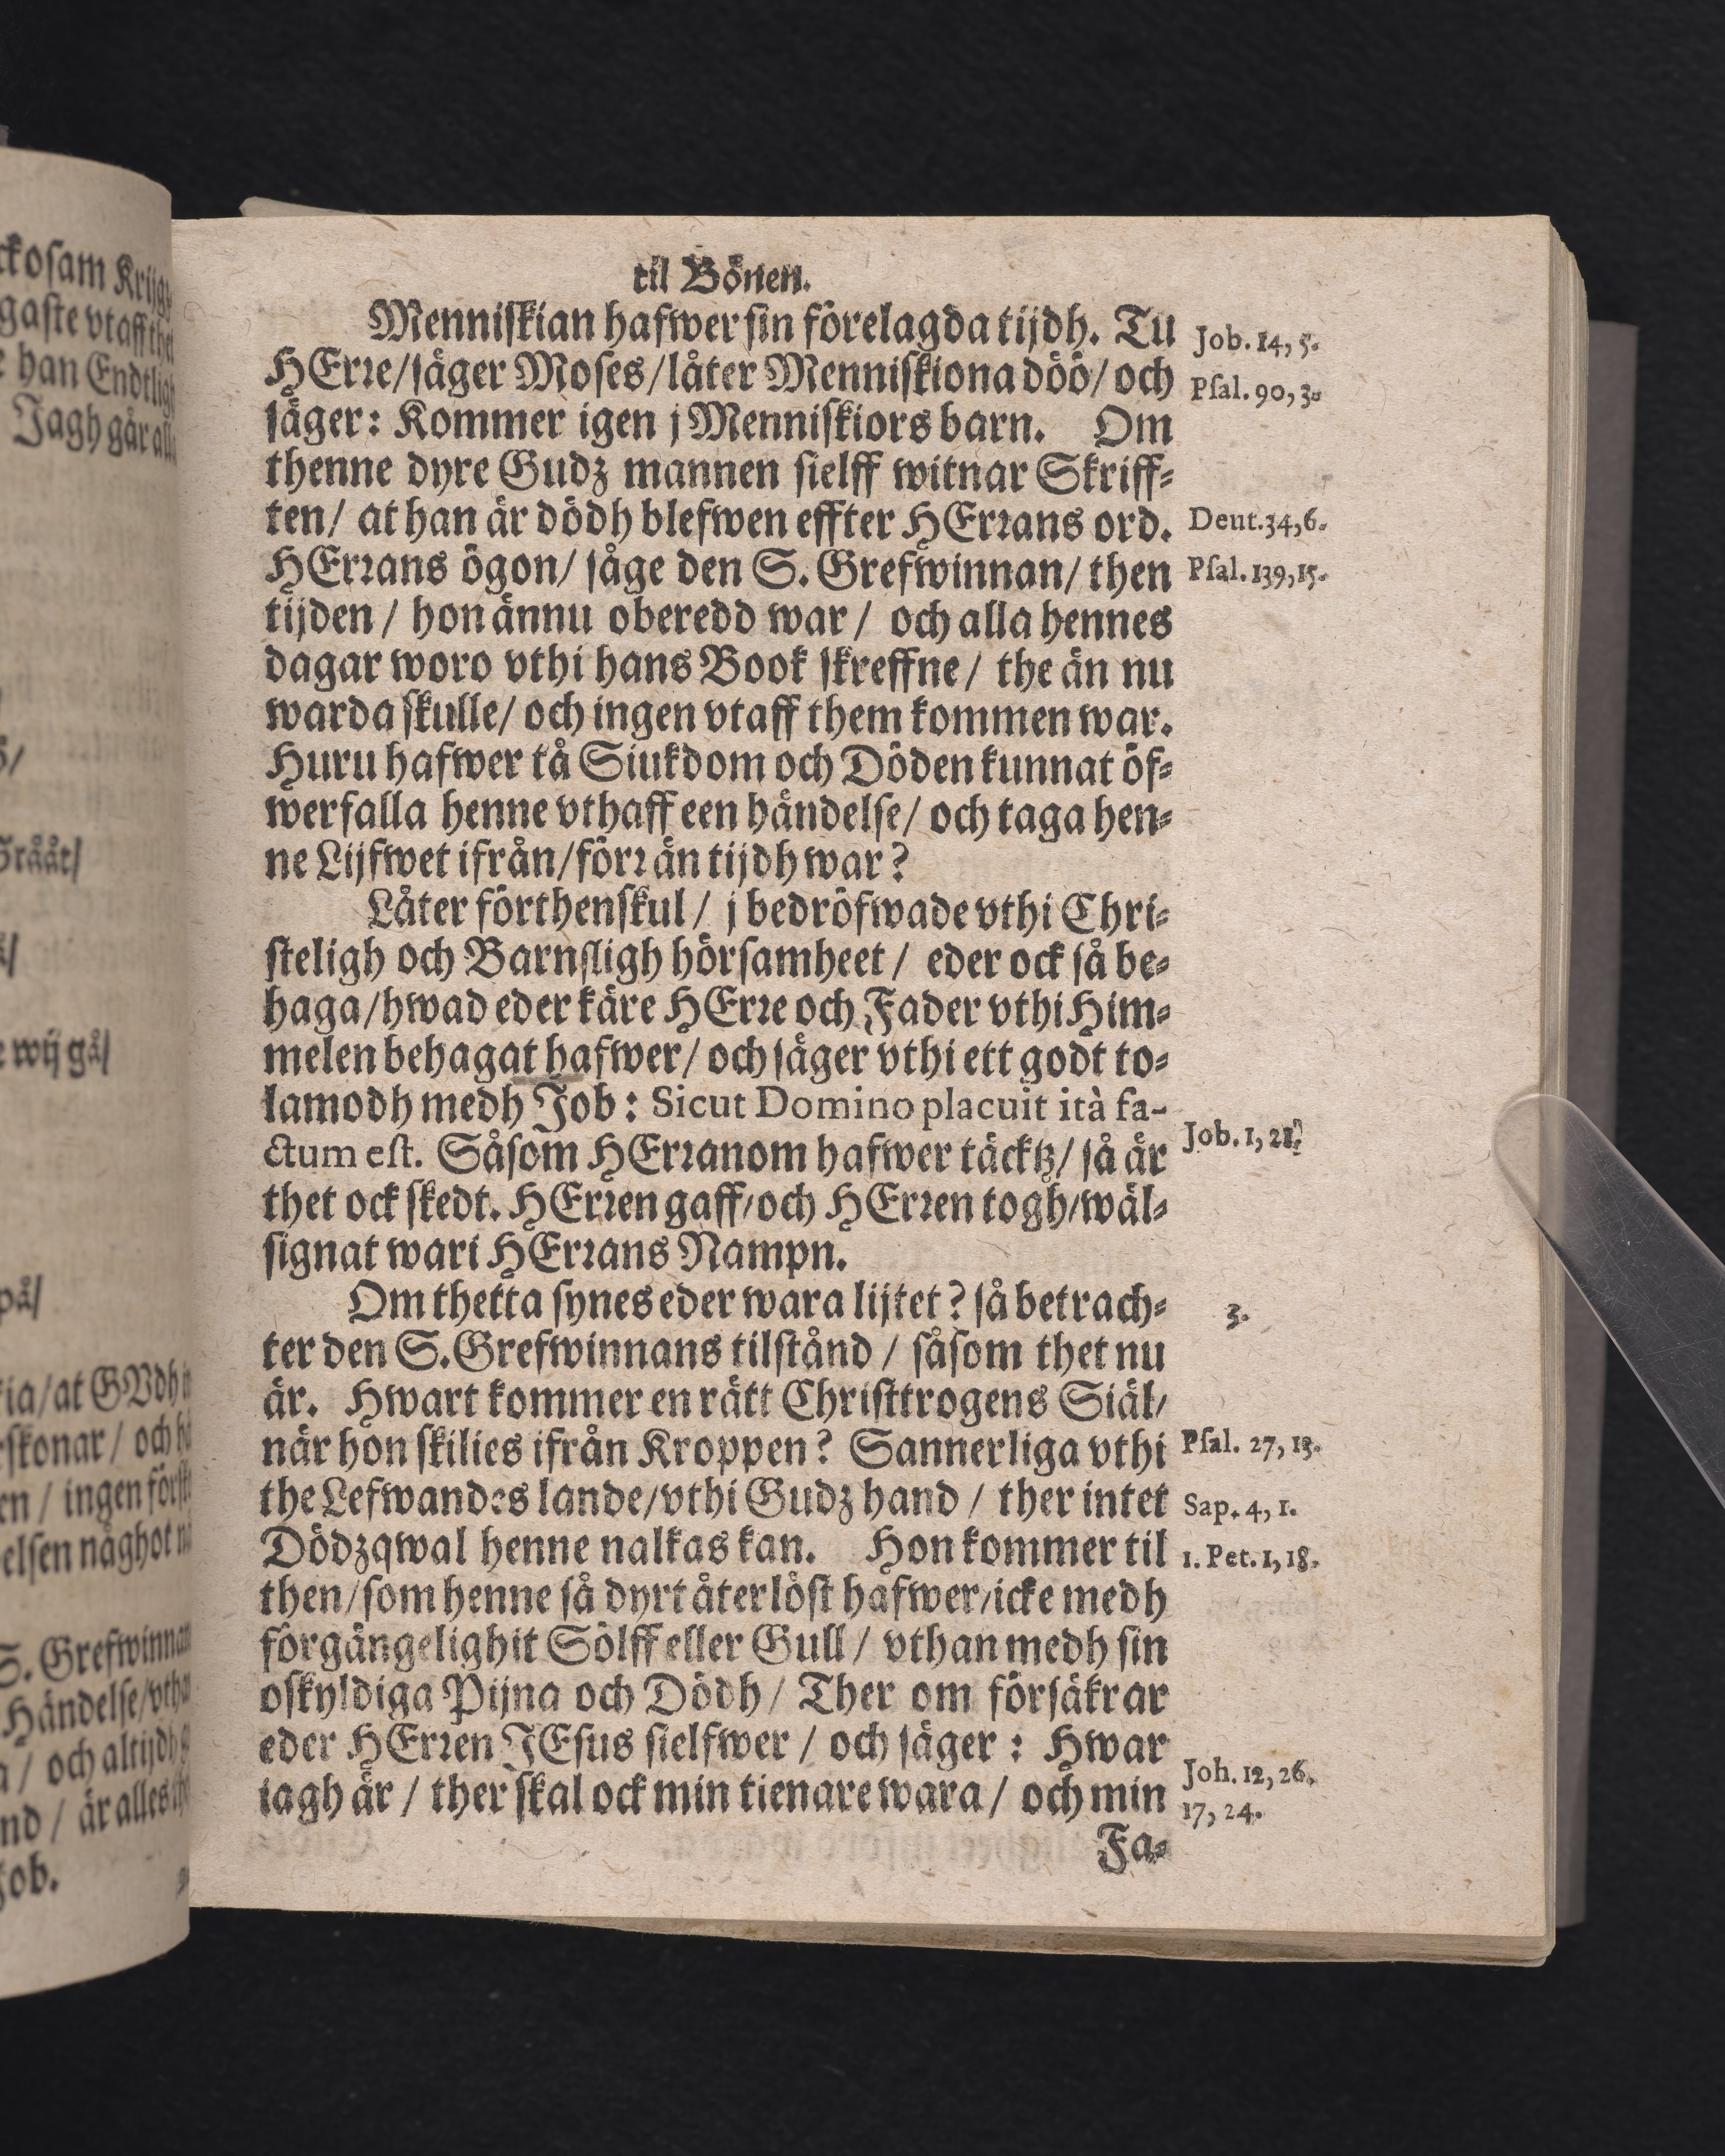 til Bönen.
Menniſkian hafwer ſin förelagda tijdh. Tu
HErꝛe/ſäger Moſes/låter Menniſkiona döö/och
ſäger: Kommer igen j Menniſkiors barn. Om
thenne dyre Gudz mannen ſielff witnar Skriff-
ten/ at han är dödh blefwen effter HErꝛans ord.
HErꝛans ögon/ ſåge den S. Grefwinnan/ then
tijden / hon ännu oberedd war / och alla hennes
dagar woro vthi hans Book ſkreffne / the än nu
warda ſkulle/ och ingen vtaff them kommen war.
Huru hafwer tå Siukdom och Döden kunnat öf-
werfalla henne vthaff een händelſe/ och taga hen-
ne Lijfwet ifrån/förꝛ än tijdh war?
Låter förthenſkul / j bedröfwade vthi Chri-
ſteligh och Barnſligh hörſamheet / eder ock ſå be-
haga/hwad eder käre HErꝛe och Fader vthi Him-
melen behagat hafwer/ och ſäger vthi ett godt to-
lamodh medh Job: Sicut Domino placuit ità fa-
ctum eſt. Såſom HErꝛanom hafwer täcktz/ ſå är
thet ock ſkedt. HErꝛen gaff/och HErꝛen togh/wäl-
ſignat wari HErꝛans Nampn.
Om thetta ſynes eder wara lijtet? ſå betrach-
ter den S. Grefwinnans tilſtånd / ſåſom thet nu
är. Hwart kommer en rätt Chriſttrogens Siäl/
när hon ſkilies ifrån Kroppen? Sannerliga vthi
the Lefwandes lande/vthi Gudz hand / ther intet
Dödzqwal henne nalkas kan. Hon kommer til
then/ſom henne ſå dyrt återlöſt hafwer/icke medh
förgängelighit Sölff eller Gull / vthan medh ſin
oſkyldiga Pijna och Dödh/ Ther om förſäkrar
eder HErꝛen JEſus ſielfwer / och ſäger : Hwar
iagh är / ther ſkal ock min tienare wara / och min
Fa-
Job. 14, 5.
Pſal. 90, 3.
Deut. 34, 6.
Pſal. 139, 15.
Job. 1, 21.
3.
Pſal. 27, 13.
Sap. 4, 1.
1. Pet. 1, 18.
Joh. 12, 26.
17, 24.